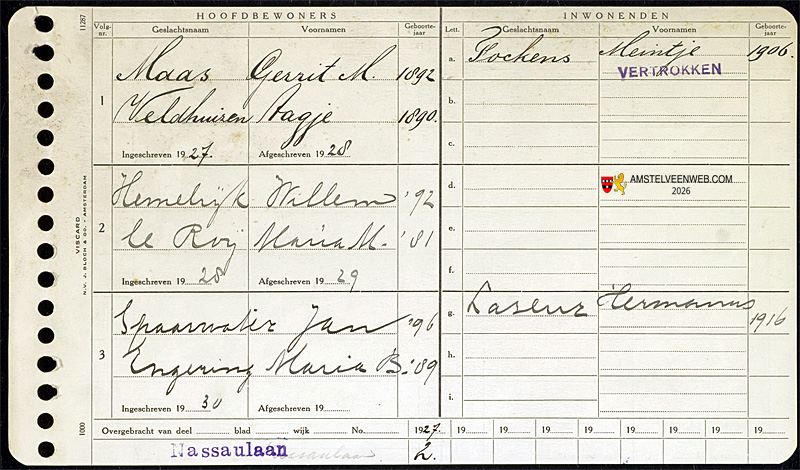 HOOFDBEWONERS
INWONENDEN
Volg-nr. Geslachtsnaam Voornamen Geboorte-jaar
Lett. Geslachtsnaam Voornamen Geboorte-jaar
1
Maas Gerrit M. 1892
Veldhuizen Aagje 1890.
Ingeschreven 1927. Afgeschreven 1928
a. Fockens Meintje 1906.
VERTROKKEN
b.
c.
2
Hemelrijk Willem '92
le Roij Maria M. '81
Ingeschreven 1928 Afgeschreven 1929
d.
AMSTELVEENWEB.COM
2026
e.
f.
3
Spaarwater Jan '96
Engering Maria B. '89
Ingeschreven 1930 Afgeschreven 19
g. Hermanus 1916
h.
i.
Overgebracht van deel blad wijk No. 1927. 19 19 19 19 19 19 19 19
Nassaulaan 2.
11267
VISCARD
N.V. J. BLOCH & CO. - AMSTERDAM
1000